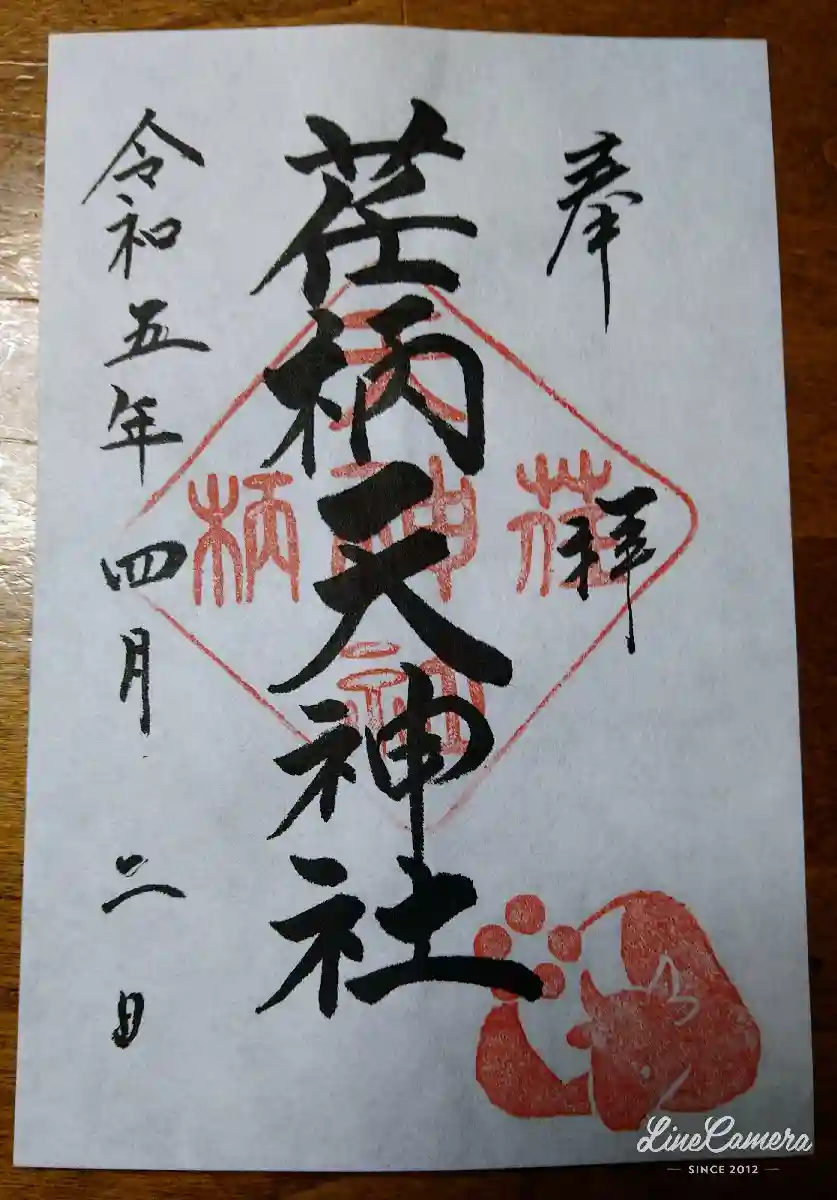 奉拝
荏柄天神社
令和五年四月二日
荏
天神社
柄
LineCamera
SINCE 2012